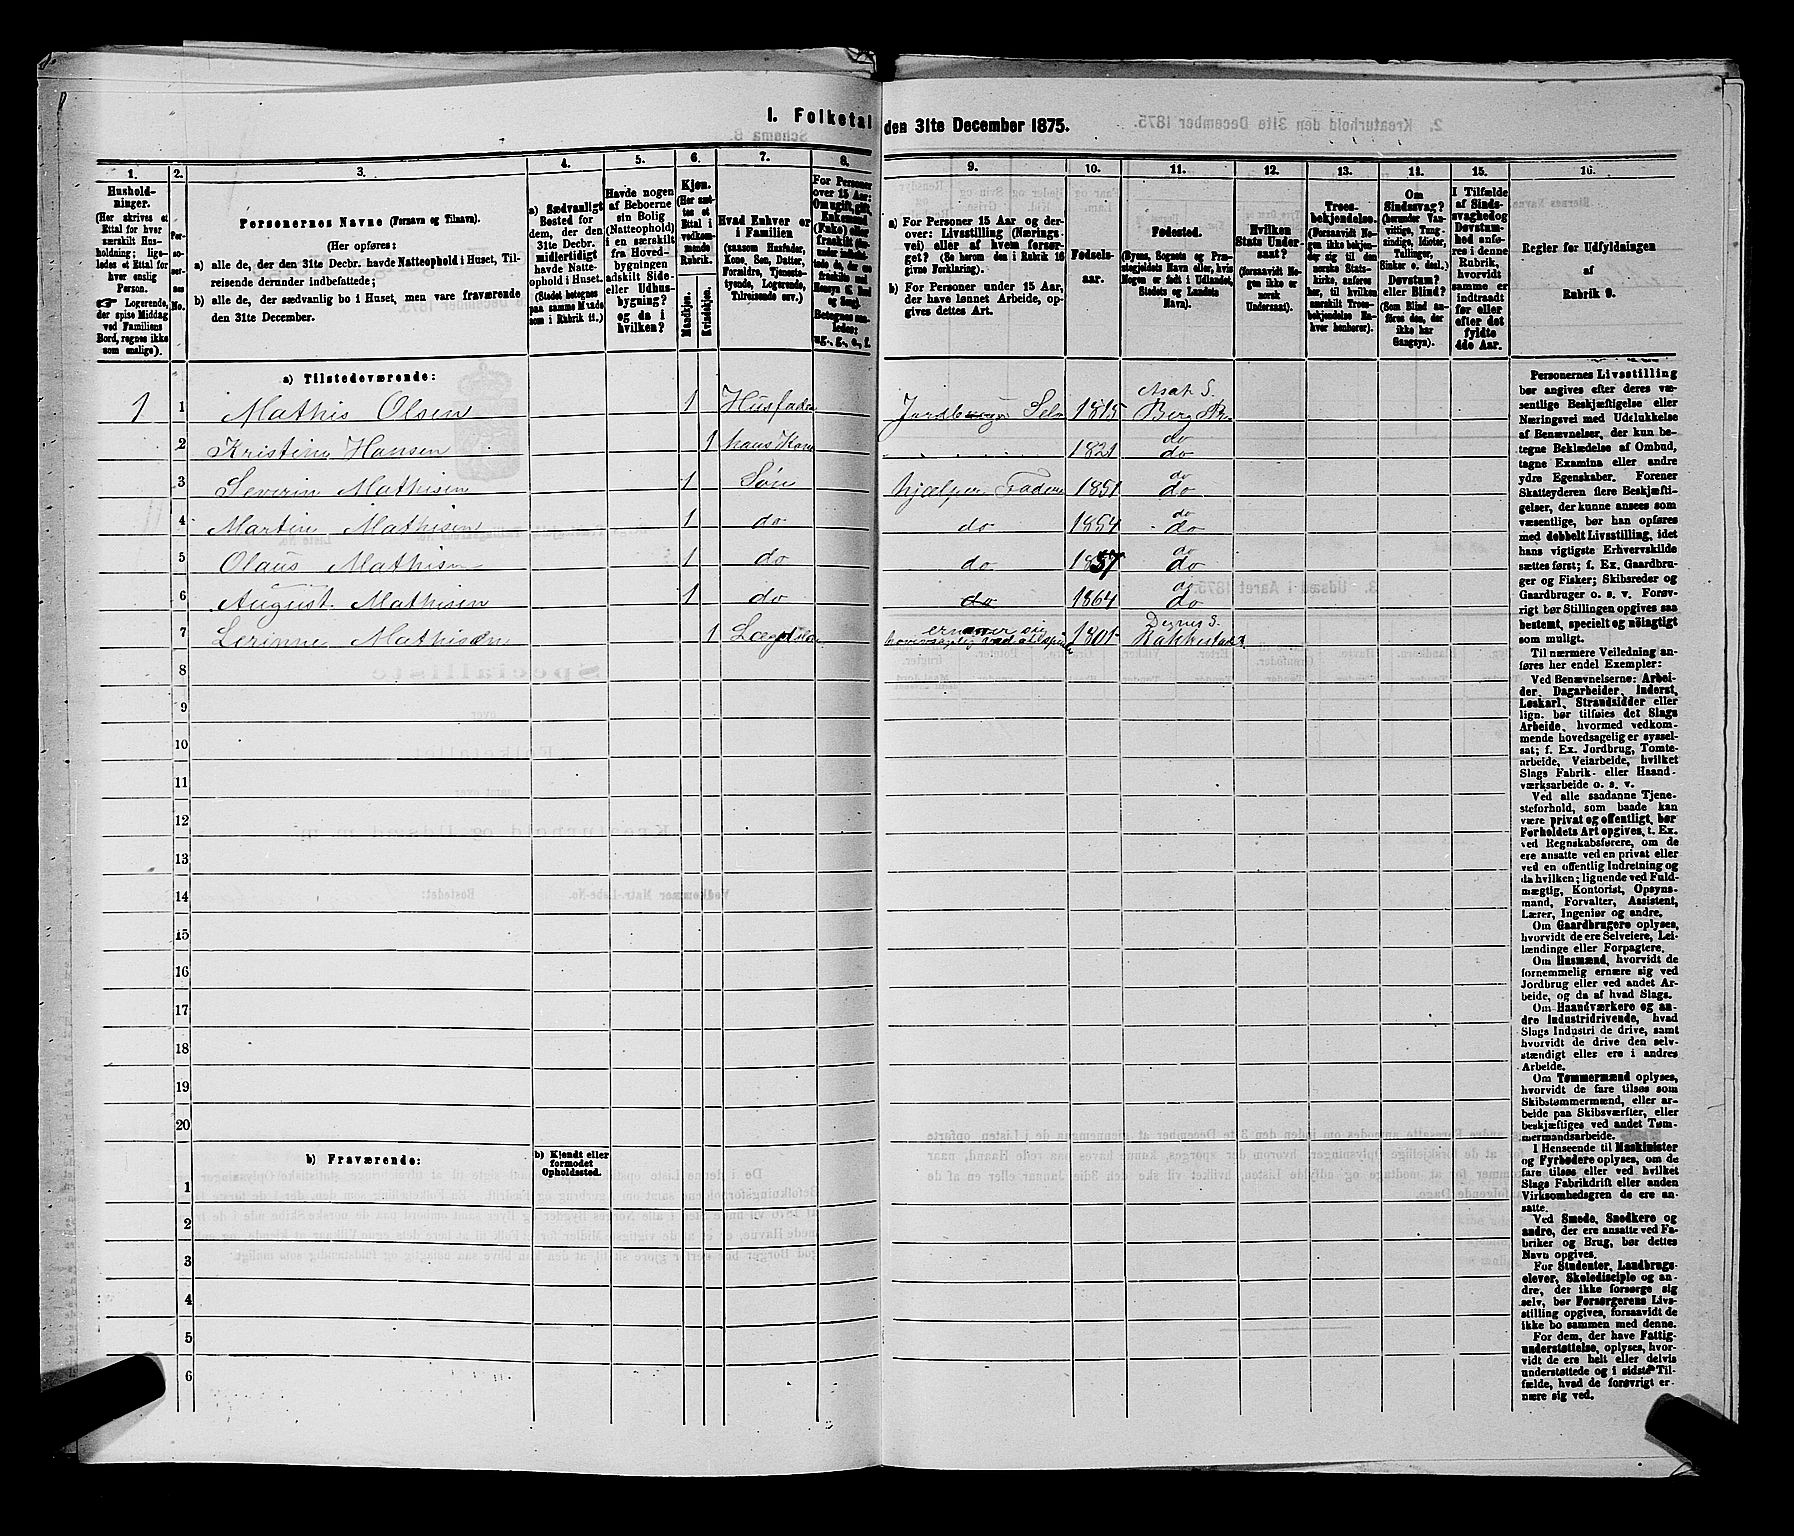 I. Folketal den 31te December 1875.
1. 2. 3. 4. 5. 6. 7. 8. 9. 10. 11. 12. 13. 14. 15. 16.
Husholdninger.
(Her skrives et
Ettal for hver
særskilt Husholdning;
ligeledes et Ettal for
hver enslig
Person.
☛ Logerende,
der spise Middag
ved Familiens
Bord, regnes ikke
som enslige).
Personernes No.
Personernes Navne (Fornavn og Tilnavn).
(Her opføres:
a) alle de, der den 31te Decbr. havde Natteophold i Huset, Tilreisende derunder indbefattede;
b) alle de, der sædvanlig bo i Huset, men vare fraværende
den 31te December.
a) Sædvanligt
Bosted for
dem, der den
31te Decbr.
midlertidigt
havde Natteophold i Huset.
(Stedet betegnes
paa samme Maade
som i Rubrik 11.)
Havde nogen
af Beboerne
sin Bolig
(Natteophold)
i en særskilt
fra Hovedbygningen
adskilt Side-
eller Udhusbygning?
og da i
hvilken?
Kjøn.
(Her sættes et
Ettal i
vedkommende
Rubrik.
Mandkjøn.
Kvindekjøn.
Hvad Enhver er
i Familien
(saasom Husfader,
Kone, Søn, Datter,
Forældre, Tjenestetyende, Logerende,
Tilreisende osv.)
For Personer
over 15 Aar:
a) For Personer 15 Aar og derover: Livsstilling (Næringsvei) eller af hvem forsørget? (Se herom den i Rubrik 16
givne Forklaring).
b) For Personer under 15 Aar,
der have lønnet Arbeide, opgives dettes Art.
Fødselsaar.
Fødested.
(Byens, Sognets og Præstegjeldets Navn eller, hvis
Nogen er født i Udlandet,
Stedets og Landets
Navn).
Hvilken
Stats Undersaat?
(forsaavidt Nogen ikke er
norsk
Undersaat).
Troesbekjendelse.
(Forsaavidt Nogen ikke bekjender sig til den
norske Statskirke, anføres
her, til hvilken
særskilt Troesbekjendelse Enhver henhører).
Om
Sindssvag?
(herunder Vanvittige, Tungsindige, Idioter,
Tullinger,
Sinker o. desl.)
Døvstum?
eller Blind?
(Som Blind anføres den, der
ikke har
Gangsyn).
I Tilfælde
af Sindssvaghed og
Døvstumhed anføres i denne
Rubrik,
hvorvidt
samme er
indtraadt
før eller
efter det
fyldte
4de Aar.
Regler for Udfyldningen
af
Rubrik 9.
a) Tilstedeværende:
1 1 Mathis Olsen 1 Husfader 1815 Berg
2 Kristine Hansen 1 hans Kone 1821 do do
3 Severin Mathisen 1 Søn hjælper Faderen 1851 do do
4 Martin Mathisen 1 do do 1854 do do
5 Olaus Mathisen 1 do do 1857 do do
6 August Mathisen 1 do do 1864 do do
7 Mathisen 1 ernærer sig 1801 Degnes S.
Rakkestad
8
9
10
11
12
13
14
15
16
17
18
19
20
b) Fraværende:
b) Kjendt eller
formodet
Opholdssted.
1
2
3
4
5
6
Personernes Livsstilling
bør angives efter deres væsentlige Beskjæftigelse eller
Næringsvei med Udelukkelse
af Benævnelser, der kun betegne Beklædelse af Ombud,
tagne Examina eller andre
ydre Egenskaber. Forener
Skatteyderen flere Beskjæftigelser, der kunne ansees som
væsentlige, bør han opføres
med dobbelt Livsstilling, idet
hans vigtigste Erhvervskilde
sættes først; f. Ex. Gaardbruger og Fisker; Skibsreder og
Gaardbruger o. s. v. Forøvrigt bør Stillingen opgives saa
bestemt, specielt og nøiagtigt
som muligt.
Til nærmere Veiledning anføres her endel Exempler:
Ved Benævnelserne: Arbeider, Dagarbeider, Inderst,
Løskarl, Strandsidder eller
lign. bør tilføies det Slags
Arbeide, hvormed vedkommende hovedsagelig er sysselsat; f. Ex. Jordbrug, Tomtearbeide, Veiarbeide, hvilket
Slags Fabrik- eller Haandværksarbeide o. s. v.
Ved alle saadanne Tjenesteforhold, som baade kan
være privat og offentligt, bør
Forholdets Art opgives, t. Ex.
ved Regnskabsførere, om de
ere ansatte ved en privat eller
ved en offentlig Indretning og
da hvilken; lignende ved Fuldmægtig, Kontorist, Opsynsmand, Forvalter, Assistent,
Lærer, Ingeniør og andre.
Om Gaardbrugere oplyses,
hvorvidt de ere Selveiere, Leilændinge eller Forpagtere.
Om Husmænd, hvorvidt de
fornemmelig ernære sig ved
Jordbrug eller ved andet Arbeide, og da af hvad Slags.
Om Haandværkere og andre Industridrivende, hvad
Slags Industri de drive, samt
hvorvidt de drive den selvstændigt eller ere i andres
Arbeide.
Om Tømmermænd oplyses,
hvorvidt de fare tilsøs som
Skibstømmermænd, eller arbeide paa Skibsværfter, eller
beskjæftiges ved andet Tømmermandsarbeide.
I Henseende til Maskinister
og Fyrbødere oplyses, om de
fare tilsøs eller ved hvilket
Slags Fabrikdrift eller anden
Virksomhedsgren de ere ansatte.
Ved Smede, Snedkere og
andre, der ere ansatte ved Fabriker og Brug, bør dettes
Navn opgives.
For Studenter, Landbrugselever, Skoledisciple og andre, der ikke forsørge sig
selv, bør Forsørgerens Livsstilling opgives, forsaavidt de
ikke bo sammen med denne.
For dem, der have Fattigunderstøttelse, oplyses, hvorvidt de ere helt eller delvis
understøttede og i sidste Tilfælde, hvad de forøvrigt ernære sig ved.